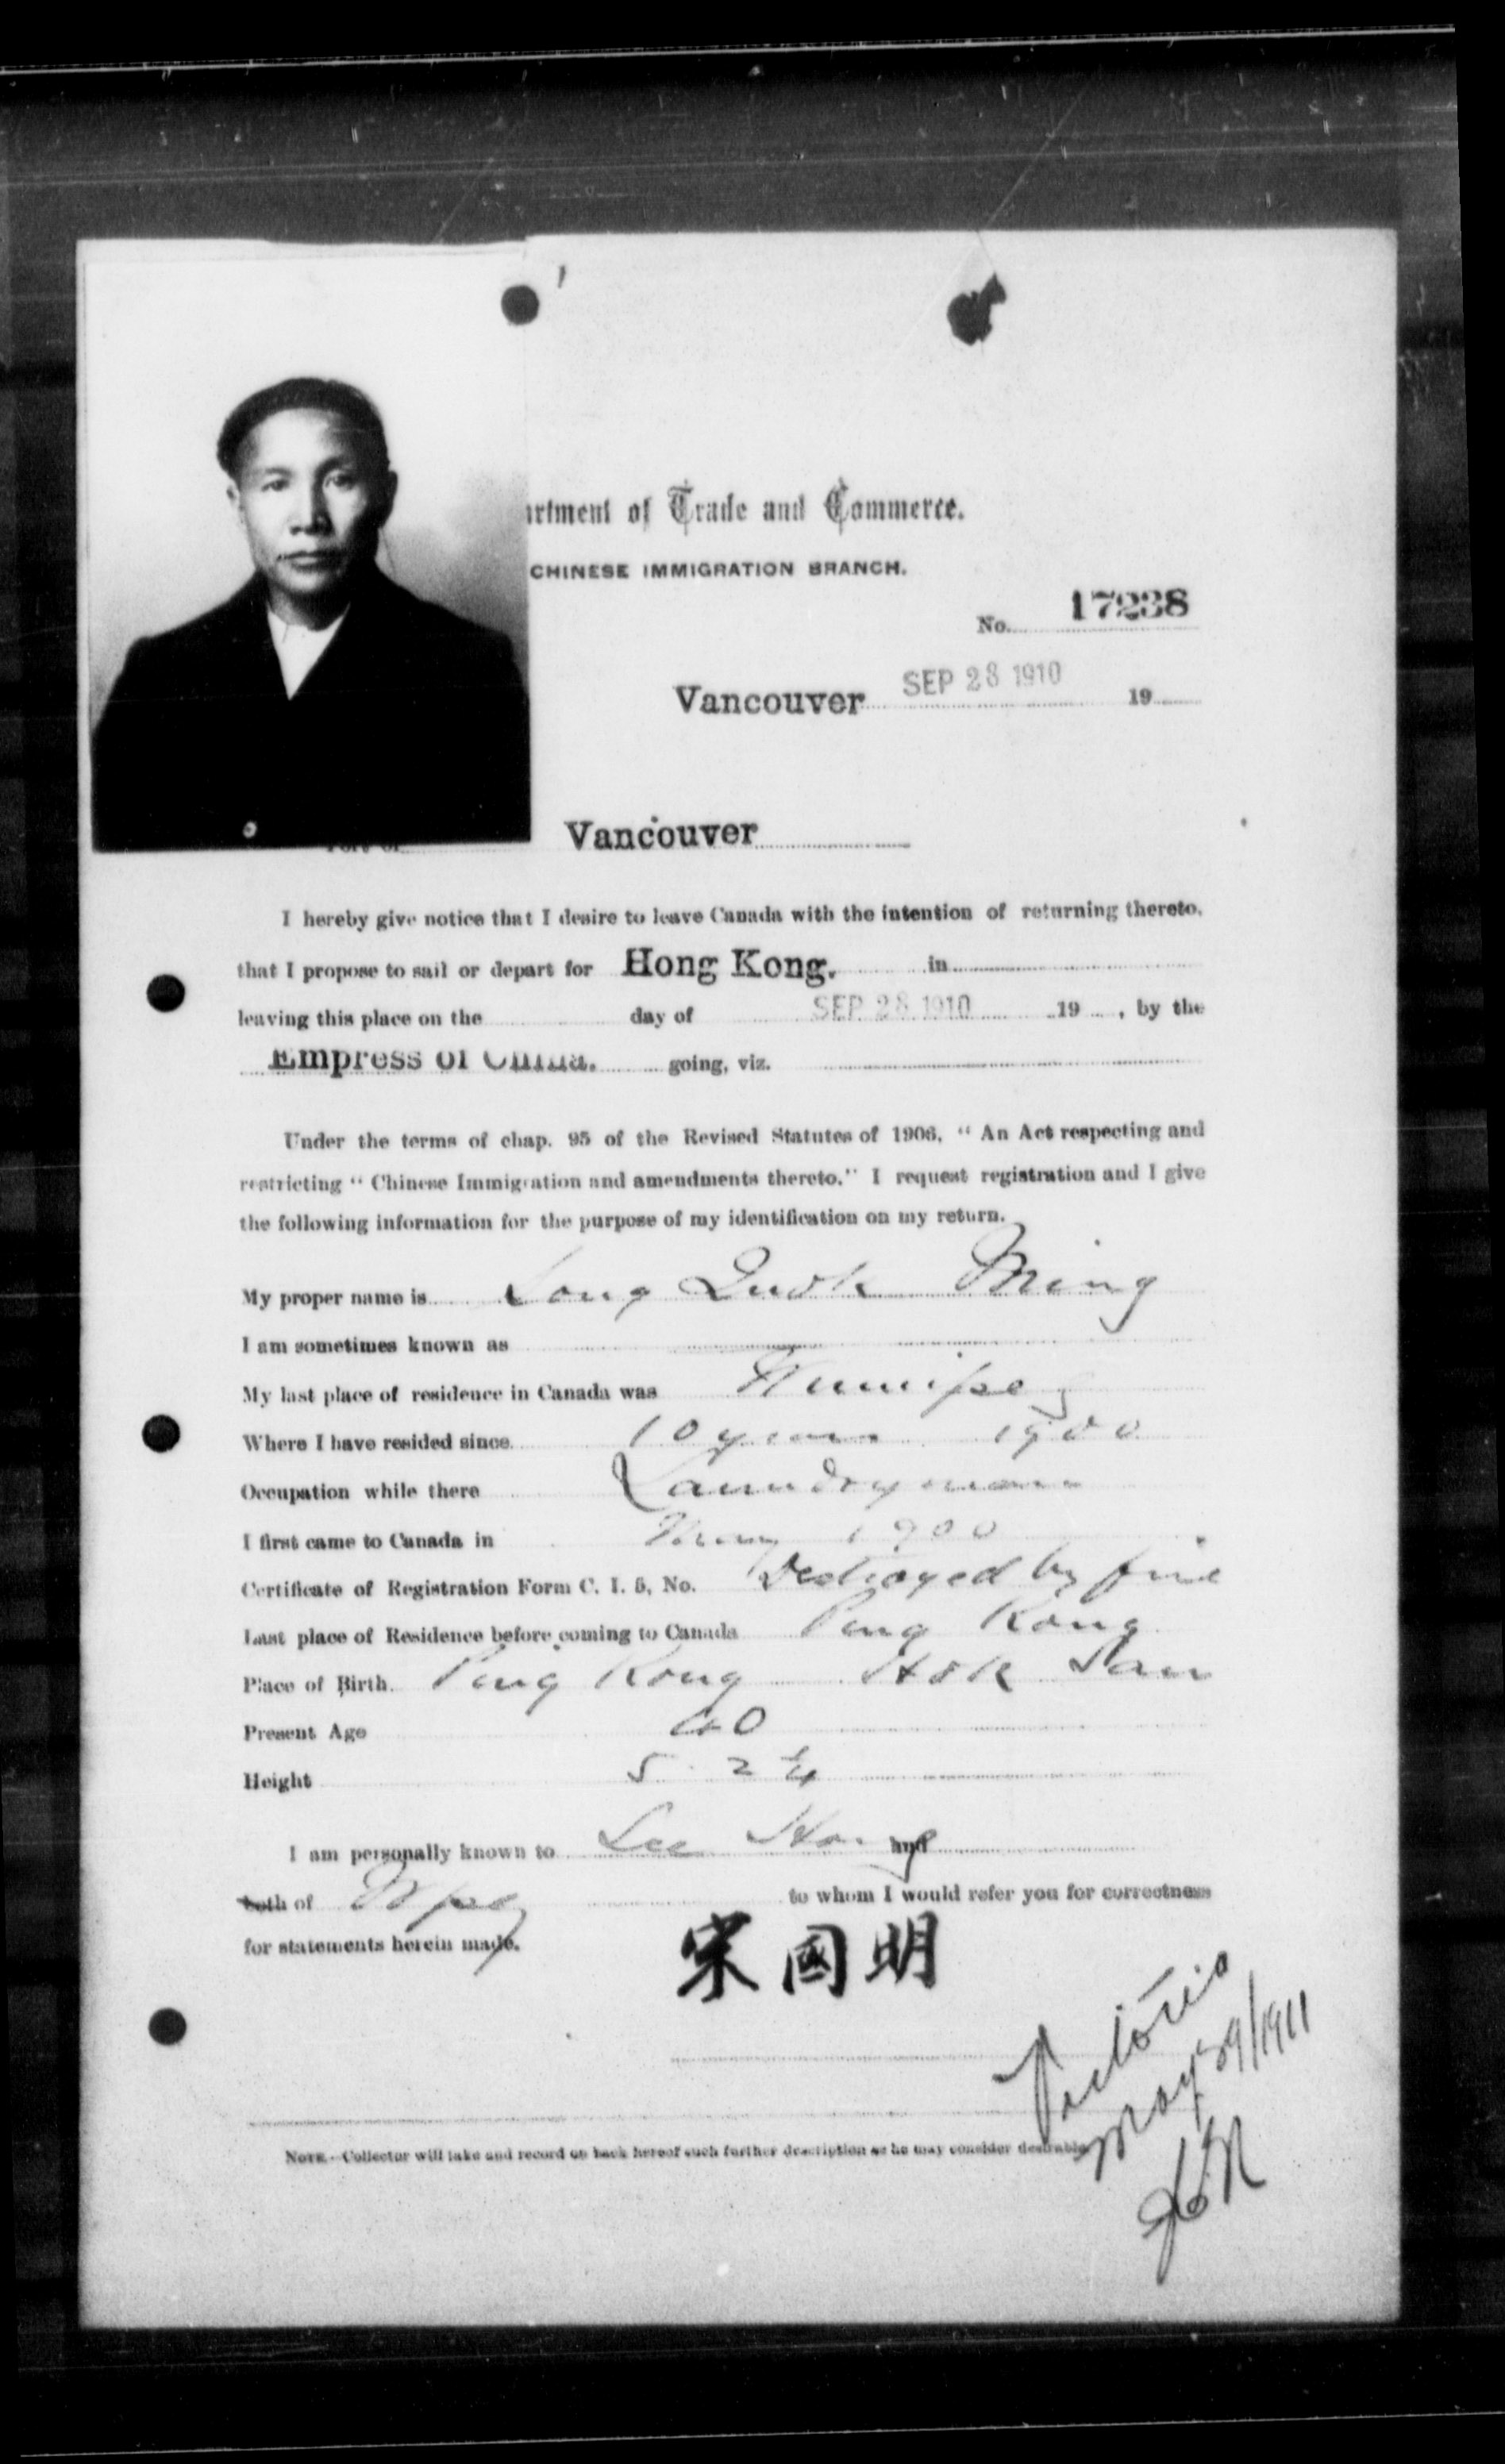 artment of Trade and Commerce.
CHINESE IMMIGRATION BRANCH.
No. 17238
Vancouver SEP 28 1910 19
Port of Vancouver
I hereby give notice that I desire to leave Canada with the intention of returning thereto,
that I propose to sail or depart for Hong Kong. in
leaving this place on the day of SEP 28 1910 19 , by the
Empress of China. going, viz.
Under the terms of chap. 95 of the Revised Statutes of 1906, “ An Act respecting and
restricting “ Chinese Immigration and amendments thereto.” I request registration and I give
the following information for the purpose of my identification on my return.
My proper name is Song Quok Ming
I am sometimes known as
My last place of residence in Canada was Winnipeg
Where I have resided since 10 years 1900
Occupation while there Laundryman
I first came to Canada in May 1900
Certificate of Registration Form C. I. 5, No. Destroyed by fire
Last place of Residence before coming to Canada Ping Kong
Place of Birth Ping Kong Hok San
Present Age 40
Height 5 2 1/4
I am personally known to Lee Hong and
both of Wpeg to whom I would refer you for correctness
for statements herein made.
宋國明
Victoria
May 29/1911
NOTE.—Collector will take and record on back hereof such further description as he may consider desirable.